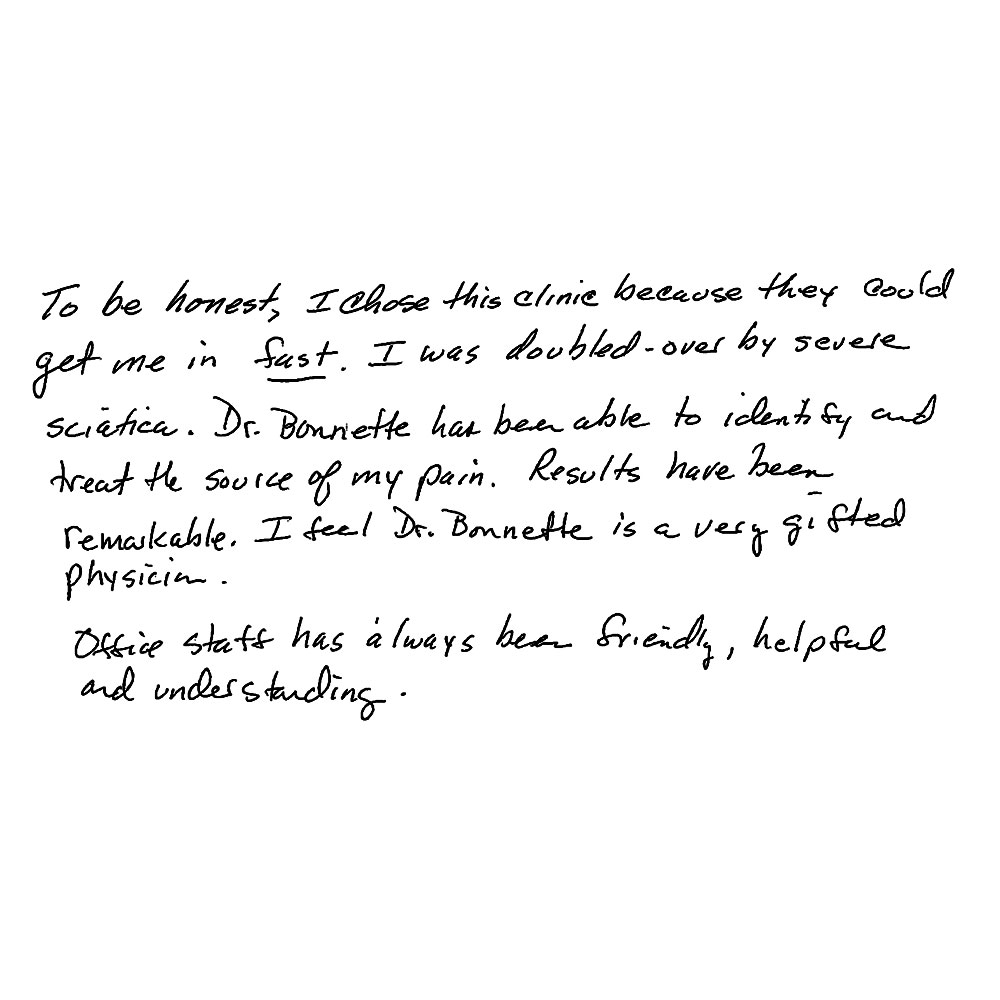 To be honest, I chose this clinic because they could
get me in fast. I was doubled-over by severe
sciatica. Dr. Bonnette has been able to identify and
treat the source of my pain. Results have been
remarkable. I feel Dr. Bonnette is a very gifted
physician.
Office staff has always been friendly, helpful
and understanding.